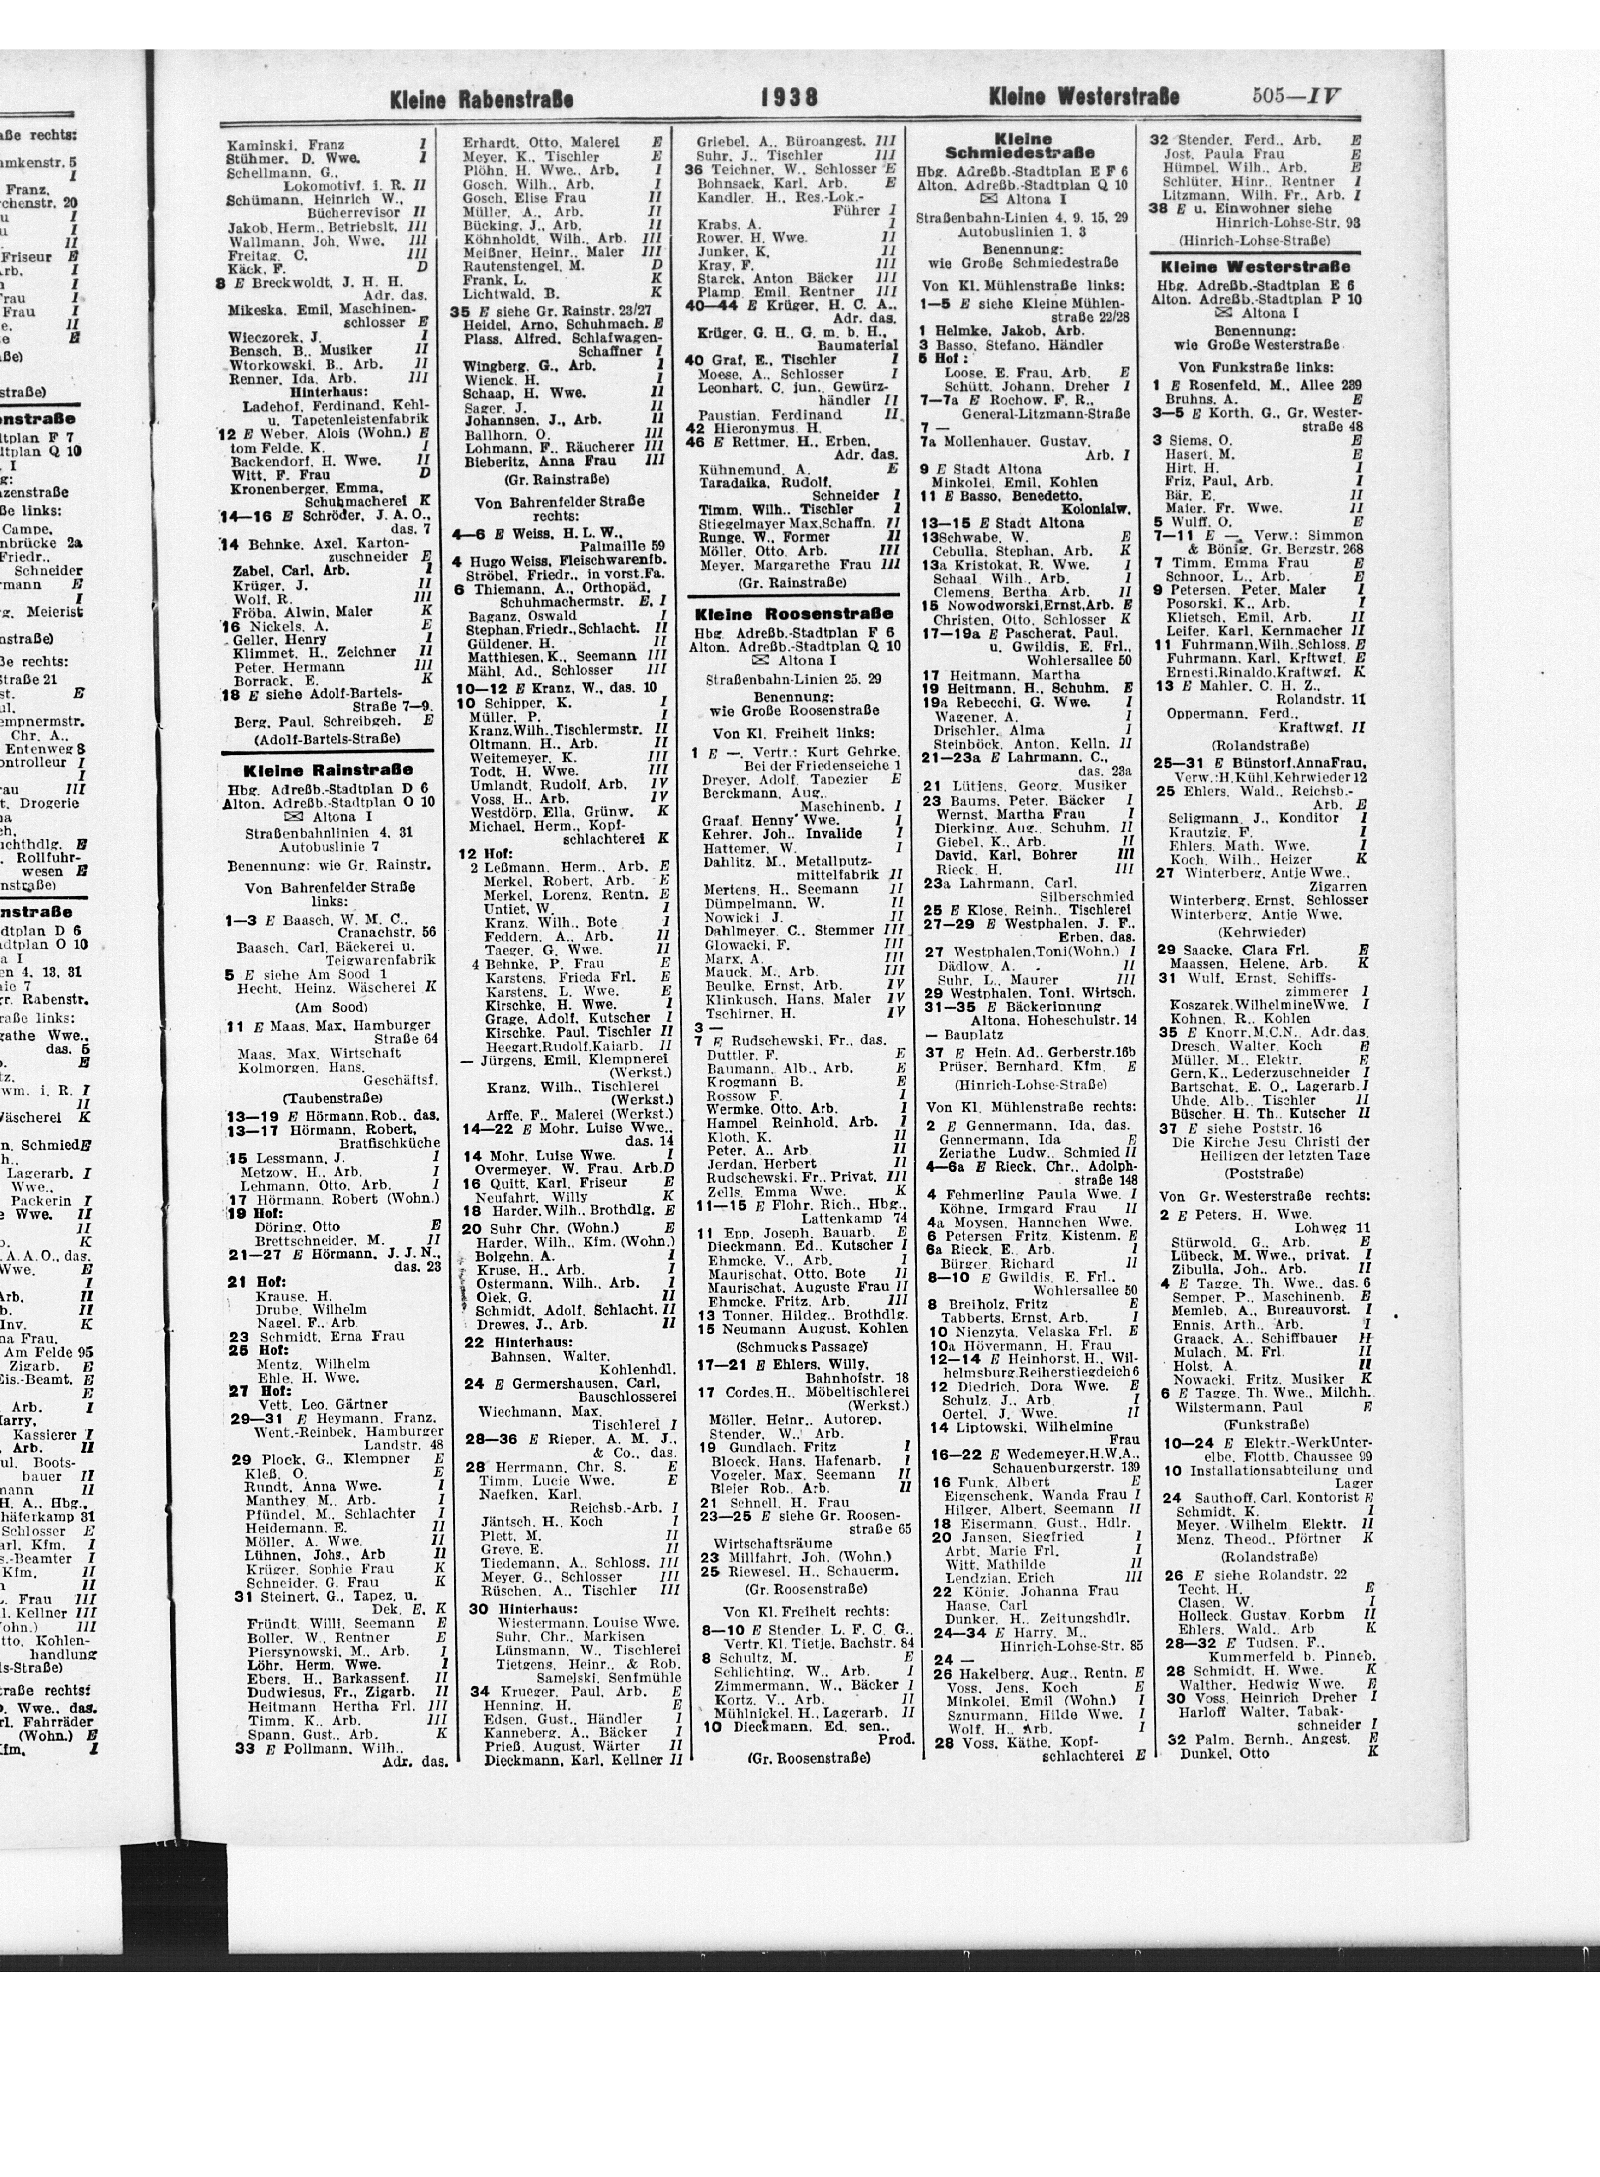 Kleine Rabenstraße 1938 Kleine Westerstraße 505—IV
Kaminski, Franz I
Stühmer, D. Wwe. I
Schellmann, G.,
Lokomotivf. i. R. II
Schümann, Heinrich W.,
Bücherrevisor II
Jakob, Herm., Betriebslt. III
Wallmann, Joh. Wwe. III
Freitag, C. III
Käck, F. D
8 E Breckwoldt, J. H. H.
Adr. das.
Mikeska, Emil, Maschinen-
schlosser E
Wieczorek, J. I
Bensch, B., Musiker II
Wtorkowski, B., Arb. II
Renner, Ida, Arb. III
Hinterhaus:
Ladehof, Ferdinand, Kehl-
u. Tapetenleistenfabrik
12 E Weber, Alois (Wohn.) E
tom Felde, K. I
Backendorf, H. Wwe. II
Witt, F. Frau D
Kronenberger, Emma,
Schuhmacherei K
14—16 E Schröder, J. A. O.,
das. 7
14 Behnke, Axel, Karton-
zuschneider E
Zabel, Carl, Arb. I
Krüger, J. II
Wolf, R. III
Fröba, Alwin, Maler K
16 Nickels, A. E
Geller, Henry I
Klimmet, H., Zeichner II
Peter, Hermann III
Borrack, E. K
18 E siehe Adolf-Bartels-
Straße 7—9.
Berg, Paul, Schreibgeh. E
(Adolf-Bartels-Straße)
Kleine Rainstraße
Hbg. Adreßb.-Stadtplan D 6
Alton. Adreßb.-Stadtplan O 10
Altona I
Straßenbahnlinien 4, 31
Autobuslinie 7
Benennung: wie Gr. Rainstr.
Von Bahrenfelder Straße
links:
1—3 E Baasch, W. M. C.,
Cranachstr. 56
Baasch, Carl, Bäckerei u.
Teigwarenfabrik
5 E siehe Am Sood 1
Hecht, Heinz, Wäscherei K
(Am Sood)
11 E Maas, Max, Hamburger
Straße 64
Maas, Max, Wirtschaft
Kolmorgen, Hans,
Geschäftsf.
(Taubenstraße)
13—19 E Hörmann, Rob., das.
13—17 Hörmann, Robert,
Bratfischküche
15 Lessmann, J. I
Metzow, H., Arb. I
Lehmann, Otto, Arb. I
17 Hörmann, Robert (Wohn.)
19 Hof:
Döring, Otto E
Brettschneider, M. II
21—27 E Hörmann, J. J. N.,
das. 23
21 Hof:
Krause, H.
Drube, Wilhelm
Nagel, F., Arb.
23 Schmidt, Erna Frau
25 Hof:
Mentz, Wilhelm
Ehle, H. Wwe.
27 Hof:
Vett, Leo, Gärtner
29—31 E Heymann, Franz,
Went.-Reinbek, Hamburger
Landstr. 48
29 Plock, G., Klempner E
Kleß, O. E
Rundt, Anna Wwe. I
Manthey, M., Arb. I
Pfündel, M., Schlachter I
Heidemann, E. II
Möller, A. Wwe. II
Lühnen, Johs., Arb II
Krüger, Sophie Frau K
Schneider, G. Frau K
31 Steinert, G., Tapez. u.
Dek. E, K
Fründt, Willi, Seemann E
Boller, W., Rentner E
Piersynowski, M., Arb. I
Löhr, Herm. Wwe. I
Ebers, H., Barkassenf. II
Dudwiesus, Fr., Zigarb. II
Heitmann, Hertha Frl. III
Timm, K., Arb. III
Spann, Gust., Arb. K
33 E Pollmann, Wilh.,
Adr. das.
Erhardt, Otto, Malerei E
Meyer, K., Tischler E
Plöhn, H. Wwe., Arb. I
Gosch, Wilh., Arb. I
Gosch, Elise Frau II
Müller, A., Arb. II
Bücking, J., Arb. II
Köhnholdt, Wilh., Arb. III
Meißner, Heinr., Maler III
Rautenstengel, M. D
Frank, L. K
Lichtwald, B. K
35 E siehe Gr. Rainstr. 23/27
Heidel, Arno, Schuhmach. E
Plass, Alfred, Schlafwagen-
Schaffner I
Wingberg, G., Arb. I
Wienck, H. I
Schaap, H. Wwe. II
Sager, J. II
Johannsen, J., Arb. II
Ballhorn, O. III
Lohmann, F., Räucherer III
Bieberitz, Anna Frau III
(Gr. Rainstraße)
Von Bahrenfelder Straße
rechts:
4—6 E Weiss, H. L. W.,
Palmaille 59
4 Hugo Weiss, Fleischwarenfb.
Ströbel, Friedr., in vorst. Fa.
6 Thiemann, A., Orthopäd.
Schuhmachermstr. E, I
Baganz, Oswald I
Stephan, Friedr., Schlacht. II
Güldener, H. II
Matthiesen, K., Seemann III
Mähl, Ad., Schlosser III
10—12 E Kranz, W., das. 10
10 Schipper, K. I
Müller, P. I
Kranz, Wilh., Tischlermstr. II
Oltmann, H., Arb. II
Weitemeyer, K. III
Todt, H. Wwe. III
Umlandt, Rudolf, Arb. IV
Voss, H., Arb. IV
Westdörp, Ella, Grünw. K
Michael, Herm., Kopf-
schlachterei K
12 Hof:
2 Leßmann, Herm., Arb. E
Merkel, Robert, Arb. E
Merkel, Lorenz, Rentn. E
Untiet, W. I
Kranz, Wilh., Bote I
Feddern, A., Arb. II
Taeger, G. Wwe. II
4 Behnke, P. Frau E
Karstens, Frieda Frl. E
Karstens, L. Wwe. E
Kirschke, H. Wwe. I
Grage, Adolf, Kutscher I
Kirschke, Paul, Tischler II
Heegart, Rudolf, Kaiarb. II
— Jürgens, Emil, Klempnerei
(Werkst.)
Kranz, Wilh., Tischlerei
(Werkst.)
Arffe, F., Malerei (Werkst.)
14—22 E Mohr, Luise Wwe.,
das. 14
14 Mohr, Luise Wwe. I
Overmeyer, W. Frau, Arb. D
16 Quitt, Karl, Friseur E
Neufahrt, Willy K
18 Harder, Wilh., Brothdlg. E
20 Suhr Chr. (Wohn.) E
Harder, Wilh., Kfm. (Wohn.)
Bolgehn, A. I
Kruse, H., Arb. I
Ostermann, Wilh., Arb. I
Olek, G. II
Schmidt, Adolf, Schlacht. II
Drewes, J., Arb. II
22 Hinterhaus:
Bahnsen, Walter,
Kohlenhdl.
24 E Germershausen, Carl,
Bauschlosserei
Wiechmann, Max,
Tischlerei I
28—36 E Rieper, A. M. J.,
& Co., das.
28 Herrmann, Chr. S. E
Timm, Lucie Wwe. E
Naefken, Karl,
Reichsb.-Arb. I
Jäntsch, H., Koch I
Plett, M. II
Greve, E. II
Tiedemann, A., Schloss. III
Meyer, G., Schlosser III
Rüschen, A., Tischler III
30 Hinterhaus:
Wiestermann, Louise Wwe.
Suhr, Chr., Markisen
Lünsmann, W., Tischlerei
Tietgens, Heinr., & Rob.
Samelski, Senfmühle
34 Krueger, Paul, Arb. E
Henning, H. E
Edsen, Gust., Händler I
Kanneberg, A., Bäcker I
Prieß, August, Wärter II
Dieckmann, Karl, Kellner II
Griebel, A., Büroangest. III
Suhr, J., Tischler III
36 Teichner, W., Schlosser E
Bohnsack, Karl, Arb. E
Kandler, H., Res.-Lok.-
Führer I
Krabs, A. I
Rower, H. Wwe. II
Junker, K. II
Kray, F. III
Starck, Anton Bäcker III
Plamp, Emil, Rentner III
40—44 E Krüger, H. C. A.,
Adr. das.
Krüger, G. H., G. m. b. H.,
Baumaterial
40 Graf, E., Tischler I
Moese, A., Schlosser I
Leonhart, C. jun., Gewürz-
händler II
Paustian, Ferdinand II
42 Hieronymus, H.
46 E Rettmer, H., Erben,
Adr. das.
Kühnemund, A. E
Taradaika, Rudolf,
Schneider I
Timm, Wilh., Tischler I
Stiegelmayer Max, Schaffn. II
Runge, W., Former II
Möller, Otto, Arb. III
Meyer, Margarethe Frau III
(Gr. Rainstraße)
Kleine Roosenstraße
Hbg. Adreßb.-Stadtplan F 6
Alton. Adreßb.-Stadtplan Q 10
Altona I
Straßenbahn-Linien 25, 29
Benennung:
wie Große Roosenstraße
Von Kl. Freiheit links:
1 E —, Vertr.: Kurt Gehrke,
Bei der Friedenseiche 1
Dreyer, Adolf, Tapezier E
Berckmann, Aug.,
Maschinenb. I
Graaf, Henny Wwe. I
Kehrer, Joh., Invalide I
Hattemer, W. I
Dahlitz, M., Metallputz-
mittelfabrik II
Mertens, H., Seemann II
Dümpelmann, W. II
Nowicki J. II
Dahlmeyer, C., Stemmer III
Glowacki, F. III
Marx, A. III
Mauck, M., Arb. III
Beulke, Ernst, Arb. IV
Klinkusch, Hans, Maler IV
Tschirner, H. IV
3 —
7 E Rudschewski, Fr., das.
Duttler, F. E
Baumann, Alb., Arb. E
Krogmann B. E
Rossow F. I
Wermke, Otto, Arb. I
Hampel, Reinhold, Arb. I
Kloth, K. II
Peter, A., Arb. II
Jerdan, Herbert II
Rudschewski, Fr., Privat. III
Zells, Emma Wwe. K
11—15 E Flohr, Rich., Hbg.,
Lattenkamp 74
11 Epp, Joseph, Bauarb. E
Dieckmann, Ed., Kutscher I
Ehmcke, V., Arb. I
Maurischat, Otto, Bote II
Maurischat, Auguste Frau II
Ehmcke, Fritz, Arb. III
13 Tonner, Hildeg., Brothdlg.
15 Neumann August, Kohlen
(Schmucks Passage)
17—21 E Ehlers, Willy,
Bahnhofstr. 18
17 Cordes, H., Möbeltischlerei
(Werkst.)
Möller, Heinr., Autorep.
Stender, W., Arb.
19 Gundlach, Fritz I
Bloeck, Hans, Hafenarb. I
Vogeler, Max, Seemann II
Bleier Rob., Arb. II
21 Schnell, H. Frau
23—25 E siehe Gr. Roosen-
straße 65
Wirtschaftsräume
23 Millfahrt, Joh. (Wohn.)
25 Riewesel, H., Schauerm.
(Gr. Roosenstraße)
Von Kl. Freiheit rechts:
8—10 E Stender, L. F. C. G.,
Vertr. Kl. Tietje, Bachstr. 84
8 Schultz, M. E
Schlichting, W., Arb. I
Zimmermann, W., Bäcker I
Kortz, V., Arb. II
Mühlnickel, H., Lagerarb. II
10 Dieckmann, Ed. sen.,
Prod.
(Gr. Roosenstraße)
Kleine
Schmiedestraße
Hbg. Adreßb.-Stadtplan E F 6
Alton. Adreßb.-Stadtplan Q 10
Altona I
Straßenbahn-Linien 4, 9, 15, 29
Autobuslinien 1, 3
Benennung:
wie Große Schmiedestraße
Von Kl. Mühlenstraße links:
1—5 E siehe Kleine Mühlen-
straße 22/28
1 Helmke, Jakob, Arb.
3 Basso, Stefano, Händler
5 Hof:
Loose, E. Frau, Arb. E
Schütt, Johann, Dreher I
7—7a E Rochow, F. R.,
General-Litzmann-Straße
7 —
7a Mollenhauer, Gustav,
Arb. I
9 E Stadt Altona
Minkolei, Emil, Kohlen
11 E Basso, Benedetto,
Kolonialw.
13—15 E Stadt Altona
13 Schwabe, W. E
Cebulla, Stephan, Arb. K
13a Kristokat, R. Wwe. I
Schaal, Wilh., Arb. I
Clemens, Bertha, Arb. II
15 Nowodworski, Ernst, Arb. E
Christen, Otto, Schlosser K
17—19a E Pascherat, Paul,
u. Gwildis, E. Frl.,
Wohlersallee 50
17 Heitmann, Martha
19 Heitmann, H., Schuhm. E
19a Rebecchi, G. Wwe. I
Wagener, A. I
Drischler, Alma I
Steinböck, Anton, Kelln. II
21—23a E Lahrmann, C.,
das. 23a
21 Lütjens, Georg, Musiker
23 Baums, Peter, Bäcker I
Wernst, Martha Frau I
Dierking, Aug., Schuhm. II
Giebel, K., Arb. II
David, Karl, Bohrer III
Rieck, H. III
23a Lahrmann, Carl,
Silberschmied
25 E Klose, Reinh., Tischlerei
27—29 E Westphalen, J. F.,
Erben, das.
27 Westphalen, Toni (Wohn.) I
Dädlow, A. II
Suhr, L., Maurer III
29 Westphalen, Toni, Wirtsch.
31—35 E Bäckerinnung
Altona, Hoheschulstr. 14
— Bauplatz
37 E Hein, Ad., Gerberstr. 16b
Prüser, Bernhard, Kfm. E
(Hinrich-Lohse-Straße)
Von Kl. Mühlenstraße rechts:
2 E Gennermann, Ida, das.
Gennermann, Ida E
Zeriathe, Ludw., Schmied II
4—6a E Rieck, Chr., Adolph-
straße 148
4 Fehmerling Paula Wwe. I
Köhne, Irmgard Frau II
4a Moysen, Hannchen Wwe.
6 Petersen Fritz, Kistenm. E
6a Rieck, E., Arb. I
Bürger, Richard II
8—10 E Gwildis, E. Frl.,
Wohlersallee 50
8 Breiholz, Fritz E
Tabberts, Ernst, Arb. I
10 Nienzyta, Velaska Frl. E
10a Hövermann, H. Frau
12—14 E Heinhorst, H., Wil-
helmsburg, Reiherstiegdeich 6
12 Diedrich, Dora Wwe. E
Schulz, J., Arb. I
Oertel, J. Wwe. II
14 Liptowski, Wilhelmine
Frau
16—22 E Wedemeyer, H. W. A.,
Schauenburgerstr. 139
16 Funk, Albert E
Eigenschenk, Wanda Frau I
Hilger, Albert, Seemann II
18 Eisermann, Gust., Hdlr.
20 Jansen, Siegfried I
Arbt, Marie Frl. I
Witt, Mathilde II
Lendzian, Erich III
22 König, Johanna Frau
Haase, Carl
Dunker, H., Zeitungshdlr.
24—34 E Harry, M.,
Hinrich-Lohse-Str. 85
24 —
26 Hakelberg, Aug., Rentn. E
Voss, Jens, Koch E
Minkolei, Emil (Wohn.) I
Sznurmann, Hilde Wwe. I
Wolf, H., Arb. I
28 Voss, Käthe, Kopf-
schlachterei E
32 Stender, Ferd., Arb. E
Jost, Paula Frau E
Hümpel, Wilh., Arb. E
Schlüter, Hinr., Rentner I
Litzmann, Wilh. Fr., Arb. I
38 E u. Einwohner siehe
Hinrich-Lohse-Str. 93
(Hinrich-Lohse-Straße)
Kleine Westerstraße
Hbg. Adreßb.-Stadtplan E 6
Alton. Adreßb.-Stadtplan P 10
Altona I
Benennung:
wie Große Westerstraße
Von Funkstraße links:
1 E Rosenfeld, M., Allee 239
Bruhns, A. E
3—5 E Korth, G., Gr. Wester-
straße 48
3 Siems, O. E
Hasert, M. E
Hirt, H. I
Friz, Paul, Arb. I
Bär, E. II
Maier, Fr. Wwe. II
5 Wulff, O. E
7—11 E —, Verw.: Simmon
& Bönig, Gr. Bergstr. 268
7 Timm, Emma Frau E
Schnoor, L., Arb. E
9 Petersen, Peter, Maler I
Posorski, K., Arb. I
Klietsch, Emil, Arb. II
Leifer, Karl, Kernmacher II
11 Fuhrmann, Wilh., Schloss. E
Fuhrmann, Karl, Krftwgf. E
Ernesti, Rinaldo, Kraftwgf. K
13 E Mahler, C. H. Z.,
Rolandstr. 11
Oppermann, Ferd.,
Kraftwgf. II
(Rolandstraße)
25—31 E Bünstorf, Anna Frau,
Verw.: H. Kühl, Kehrwieder 12
25 Ehlers, Wald., Reichsb.-
Arb. E
Seligmann, J., Konditor I
Krautzig, F. I
Ehlers, Math. Wwe. I
Koch, Wilh., Heizer K
27 Winterberg, Antje Wwe.,
Zigarren
Winterberg, Ernst, Schlosser
Winterberg, Antje Wwe.
(Kehrwieder)
29 Saacke, Clara Frl. E
Maassen, Helene, Arb. K
31 Wulf, Ernst, Schiffs-
zimmerer I
Koszarek, Wilhelmine Wwe. I
Kohnen, R., Kohlen
35 E Knorr, M. C. N., Adr. das.
Dresch, Walter, Koch E
Müller, M., Elektr. E
Gern, K., Lederzuschneider I
Bartschat, E. O., Lagerarb. I
Uhde, Alb., Tischler II
Büscher, H. Th., Kutscher II
37 E siehe Poststr. 16
Die Kirche Jesu Christi der
Heiligen der letzten Tage
(Poststraße)
Von Gr. Westerstraße rechts:
2 E Peters, H. Wwe.
Lohweg 11
Stürwold, G., Arb. E
Lübeck, M. Wwe., privat. I
Zibulla, Joh., Arb. II
4 E Tagge, Th. Wwe., das. 6
Semper, P., Maschinenb. E
Memleb, A., Bureauvorst. I
Ennis, Arth., Arb. I
Graack, A., Schiffbauer II
Mulach, M. Frl. II
Holst, A. II
Nowacki, Fritz, Musiker K
6 E Tagge, Th. Wwe., Milchh.
Wilstermann, Paul E
(Funkstraße)
10—24 E Elektr.-Werk Unter-
elbe, Flottb. Chaussee 99
10 Installationsabteilung und
Lager
24 Sauthoff, Carl, Kontorist E
Schmidt, K. I
Meyer, Wilhelm, Elektr. II
Menz, Theod., Pförtner K
(Rolandstraße)
26 E siehe Rolandstr. 22
Techt, H. E
Clasen, W. I
Holleck, Gustav, Korbm II
Ehlers, Wald., Arb K
28—32 E Tudsen, F.,
Kummerfeld b. Pinneb.
28 Schmidt, H. Wwe. K
Walther, Hedwig Wwe. E
30 Voss, Heinrich Dreher I
Harloff Walter, Tabak-
schneider I
32 Palm, Bernh., Angest. E
Dunkel, Otto K